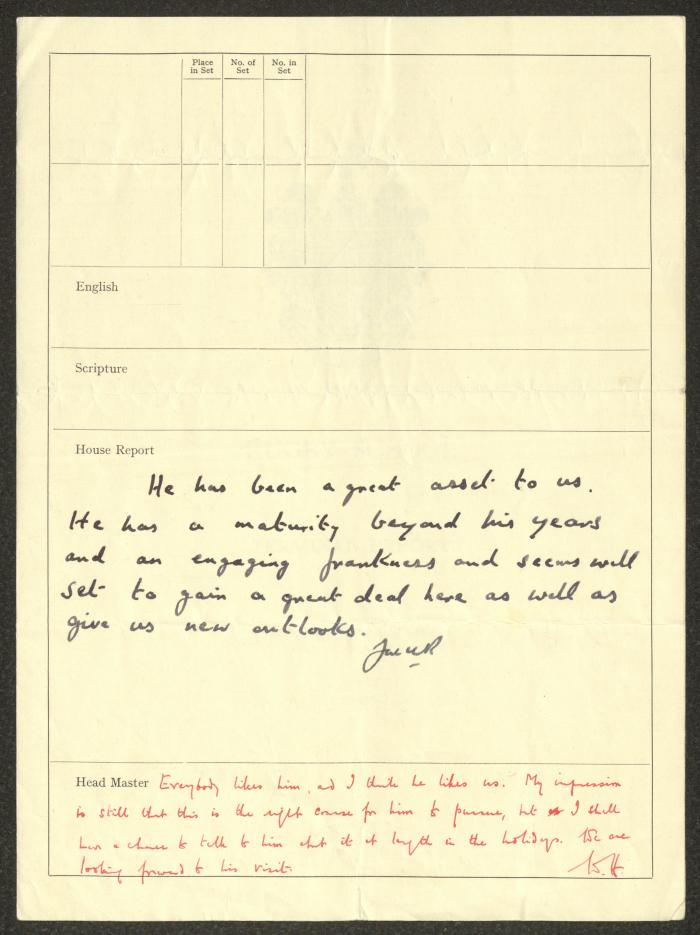 Place in Set
No. of Set
No. in Set
English
Scripture
House Report
He has been a great asset to us.
He has a maturity beyond his years
and an engaging frankness and seems well
set to gain a great deal here as well as
give us new outlooks.
Head Master Everybody likes him, and I think he likes us. My impression
is still that this is the right course for him to pursue, but I shall
have a chance to talk to him about it at length in the holidays. We are
looking forward to his visit.